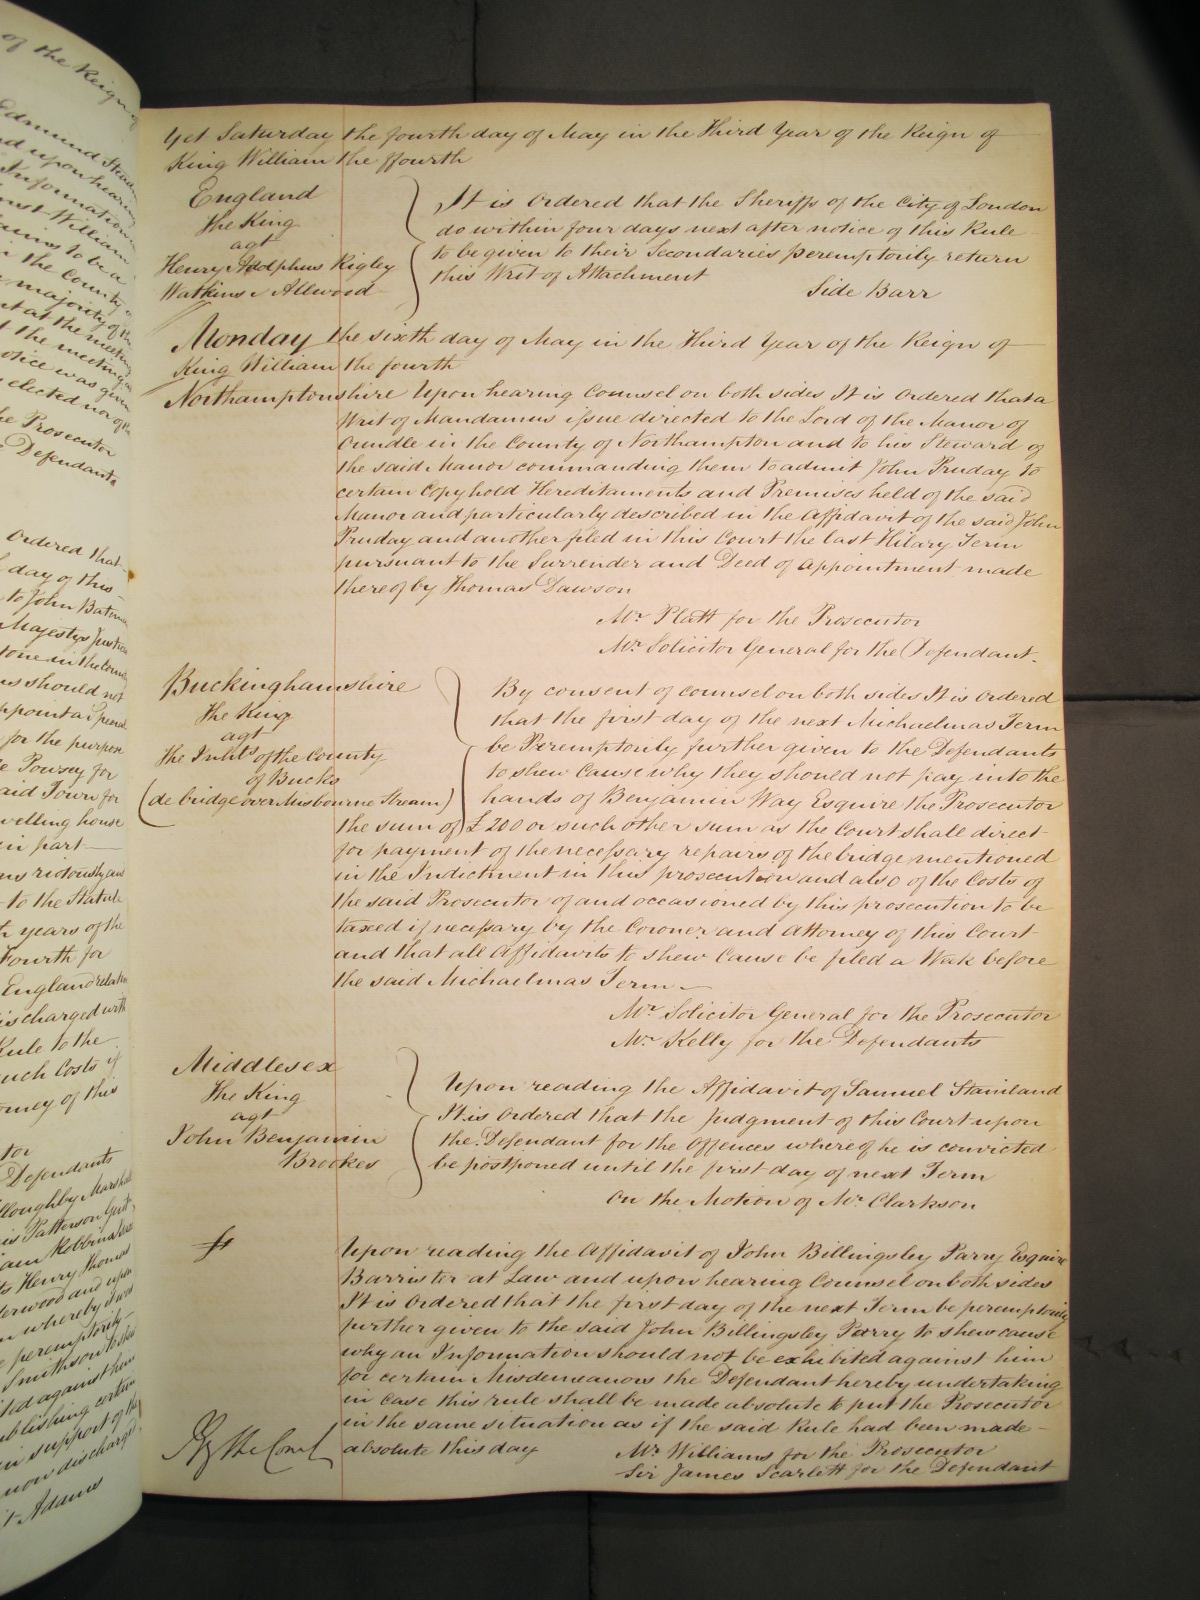 of the Reign of
Edmund
and upon hearing
Information
William
to be a
in the County
majority of the
at the meeting
the meeting
notice was given
elected nor of the
the Prosecutor
Defendants
Ordered that
day of this
to John Bateman
Majestys Justices
should not
for the purpose
Powsey for
said Town for
dwelling house
in part
riotously and
to the Statute
years of the
Fourth for
England relating
discharged with
Rule to the
such Costs if
Attorney of this
Defendants
Willoughby Marshall
Patterson
Robbins
Henry Thomas
and upon
whereby it was
peremptorily
Smithson
against him
publishing certain
in support of the
discharged
Adams
Yet Saturday the fourth day of May in the Third Year of the Reign of
King William the ffourth
England
The King
agt
Henry Adolphus Rigley
Watkins & Allwood
It is Ordered that the Sheriffs of the City of London
do within four days next after notice of this Rule
to be given to their Secondaries peremptorily return
this Writ of Attachment
Side Barr
Monday the sixth day of May in the Third Year of the Reign of
King William the fourth
Northamptonshire Upon hearing Counsel on both sides It is Ordered that a
Writ of Mandamus issue directed to the Lord of the Manor of
Oundle in the County of Northampton and to his Steward of
the said Manor commanding them to admit John Pruday to
certain Copyhold Hereditaments and Premises held of the said
Manor and particularly described in the Affidavit of the said John
Pruday and another filed in this Court the last Hilary Term
pursuant to the Surrender and Deed of Appointment made
thereof by Thomas Dawson
Mr. Platt for the Prosecutor
Mr. Solicitor General for the Defendant.
Buckinghamshire
The King
agt
the Inhts of the County
of Bucks
(de bridge over Misbourne Stream)
By consent of counsel on both sides It is Ordered
that the first day of the next Michaelmas Term
be Peremptorily further given to the Defendants
to shew Cause why they should not pay into the
hands of Benjamin Way Esquire the Prosecutor
the sum of £200 or such other sum as the Court shall direct
for payment of the necessary repairs of the bridge mentioned
in the Indictment in this prosecution and also of the Costs of
the said Prosecutor of and occasioned by this prosecution to be
taxed if necessary by the Coroner and Attorney of this Court
and that all Affidavits to shew Cause be filed a Week before
the said Michaelmas Term
Mr. Solicitor General for the Prosecutor
Mr. Kelly for the Defendants
Middlesex
The King
agt
John Benjamin
Brookes
Upon reading the Affidavit of Samuel Staniland
It is Ordered that the Judgment of this Court upon
the Defendant for the Offences whereof he is convicted
be postponed until the first day of next Term
On the Motion of Mr. Clarkson
Upon reading the Affidavit of John Billingsley Parry Esquire
Barrister at Law and upon hearing Counsel on both sides
It is Ordered that the first day of the next Term be peremptorily
further given to the said John Billingsley Parry to shew cause
why an Information should not be exhibited against him
for certain Misdemeanors the Defendant hereby undertaking
in case this rule shall be made absolute to put the Prosecutor
in the same situation as if the said Rule had been made
absolute this day
Mr. Williams for the Prosecutor
Sir James Scarlett for the Defendant
By the Court